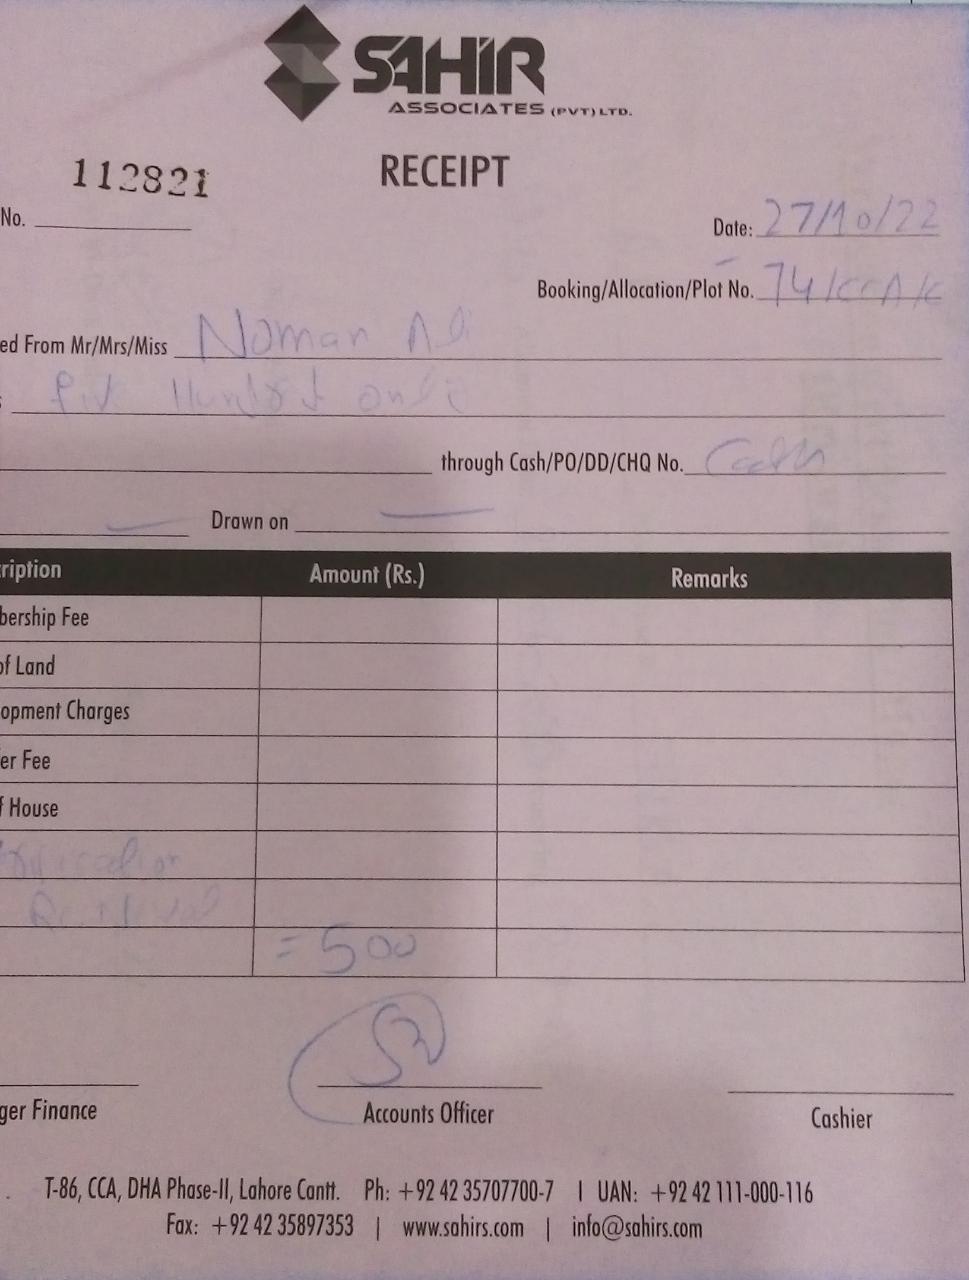 SAHIR
ASSOCIATES (PVT) LTD.
112821
RECEIPT
No.
Date: 27/10/22
Booking/Allocation/Plot No. 74/CCA/C
ed From Mr/Mrs/Miss Noman Ali
Hundred only
through Cash/PO/DD/CHQ No. Cash
Drawn on
ription Amount (Rs.) Remarks
bership Fee
of Land
opment Charges
er Fee
f House
= 500
ger Finance Accounts Officer Cashier
T-86, CCA, DHA Phase-II, Lahore Cantt. Ph: +92 42 35707700-7 | UAN: +92 42 111-000-116
Fax: +92 42 35897353 | www.sahirs.com | info@sahirs.com